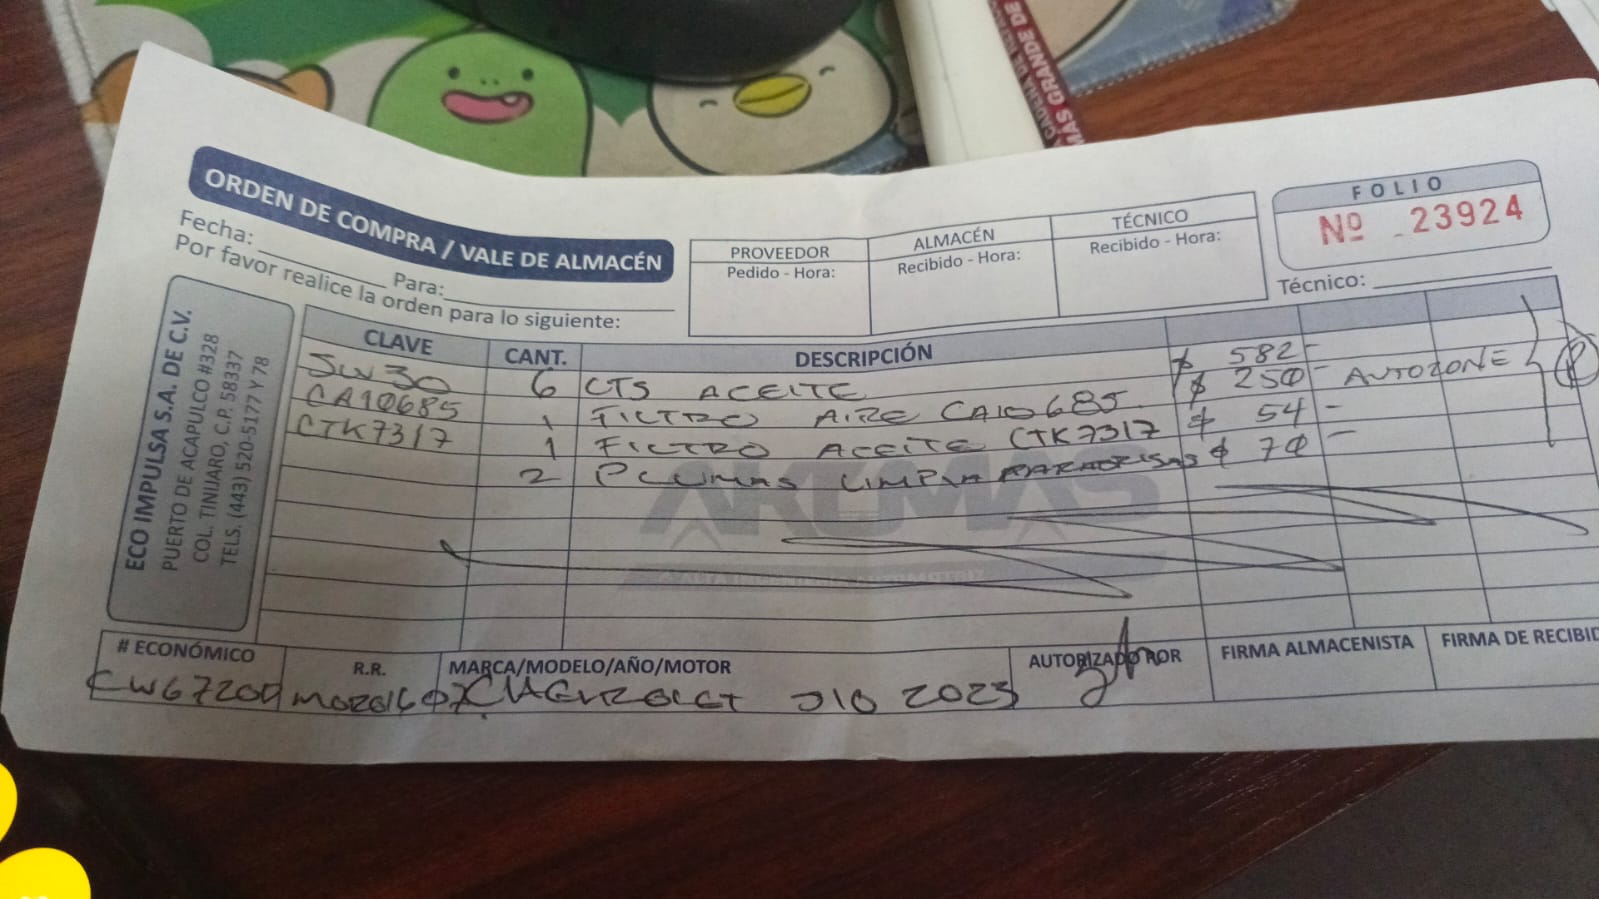 CADENA DE
MÁS GRANDE DE
ORDEN DE COMPRA / VALE DE ALMACÉN
Fecha: Para:
Por favor realice la orden para lo siguiente:
PROVEEDOR ALMACÉN TÉCNICO
Pedido - Hora: Recibido - Hora: Recibido - Hora:
FOLIO
Nº 23924
Técnico:
ECO IMPULSA S.A. DE C.V.
PUERTO DE ACAPULCO #328
COL. TINIJARO, C.P. 58337
TELS. (443) 520-5177 Y 78
CLAVE CANT. DESCRIPCIÓN
5W30 6 CTS ACEITE $ 582-
CA10685 1 FILTRO AIRE CA10685 $ 250- AUTOZONE
CTK7317 1 FILTRO ACEITE CTK7317 $ 54-
2 PLUMAS LIMPIA PARABRISAS $ 70-
AKUMAS
# ECONÓMICO R.R. MARCA/MODELO/AÑO/MOTOR AUTORIZADO POR FIRMA ALMACENISTA FIRMA DE RECIBID
CHEVROLET S10 2023